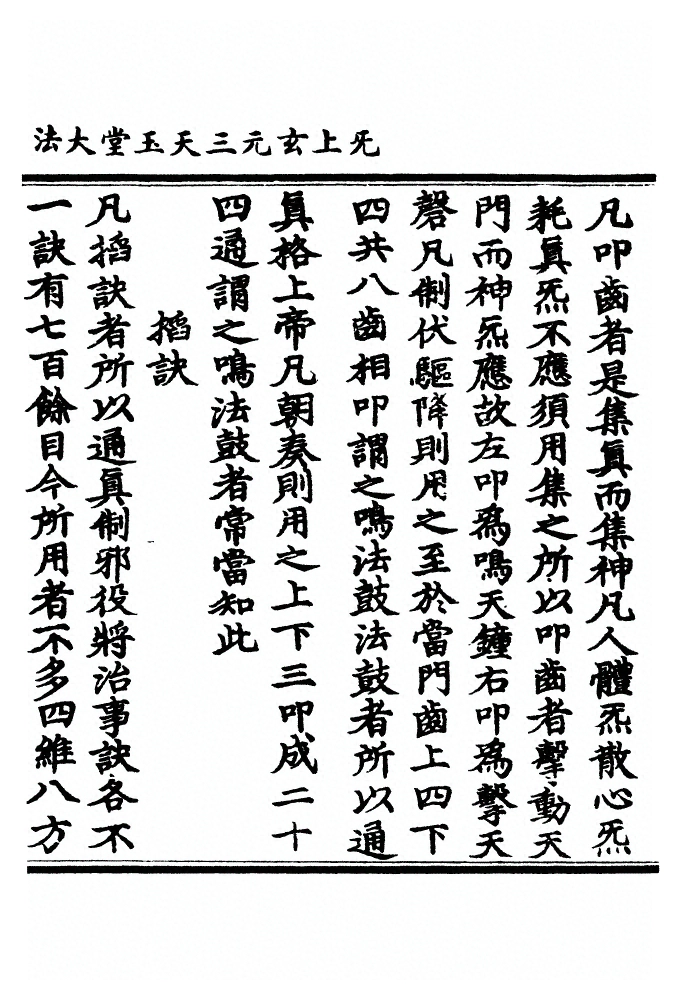 无上玄元三天玉堂大法
凡叩齒者是集真而集神凡人體炁散心炁
耗真炁不應須用集之所以叩齒者擊動天
門而神炁應故左叩爲鳴天鐘右叩爲擊天
磬凡制伏驅降則用之至於當門齒上四下
四共八齒相叩謂之鳴法鼓法鼓者所以通
眞格上帝凡朝奏則用之上下三叩成二十
四通謂之鳴法鼓者常當知此
搯訣
凡搯訣者所以通眞制邪役將治事訣各不
一訣有七百餘目今所用者不多四維八方